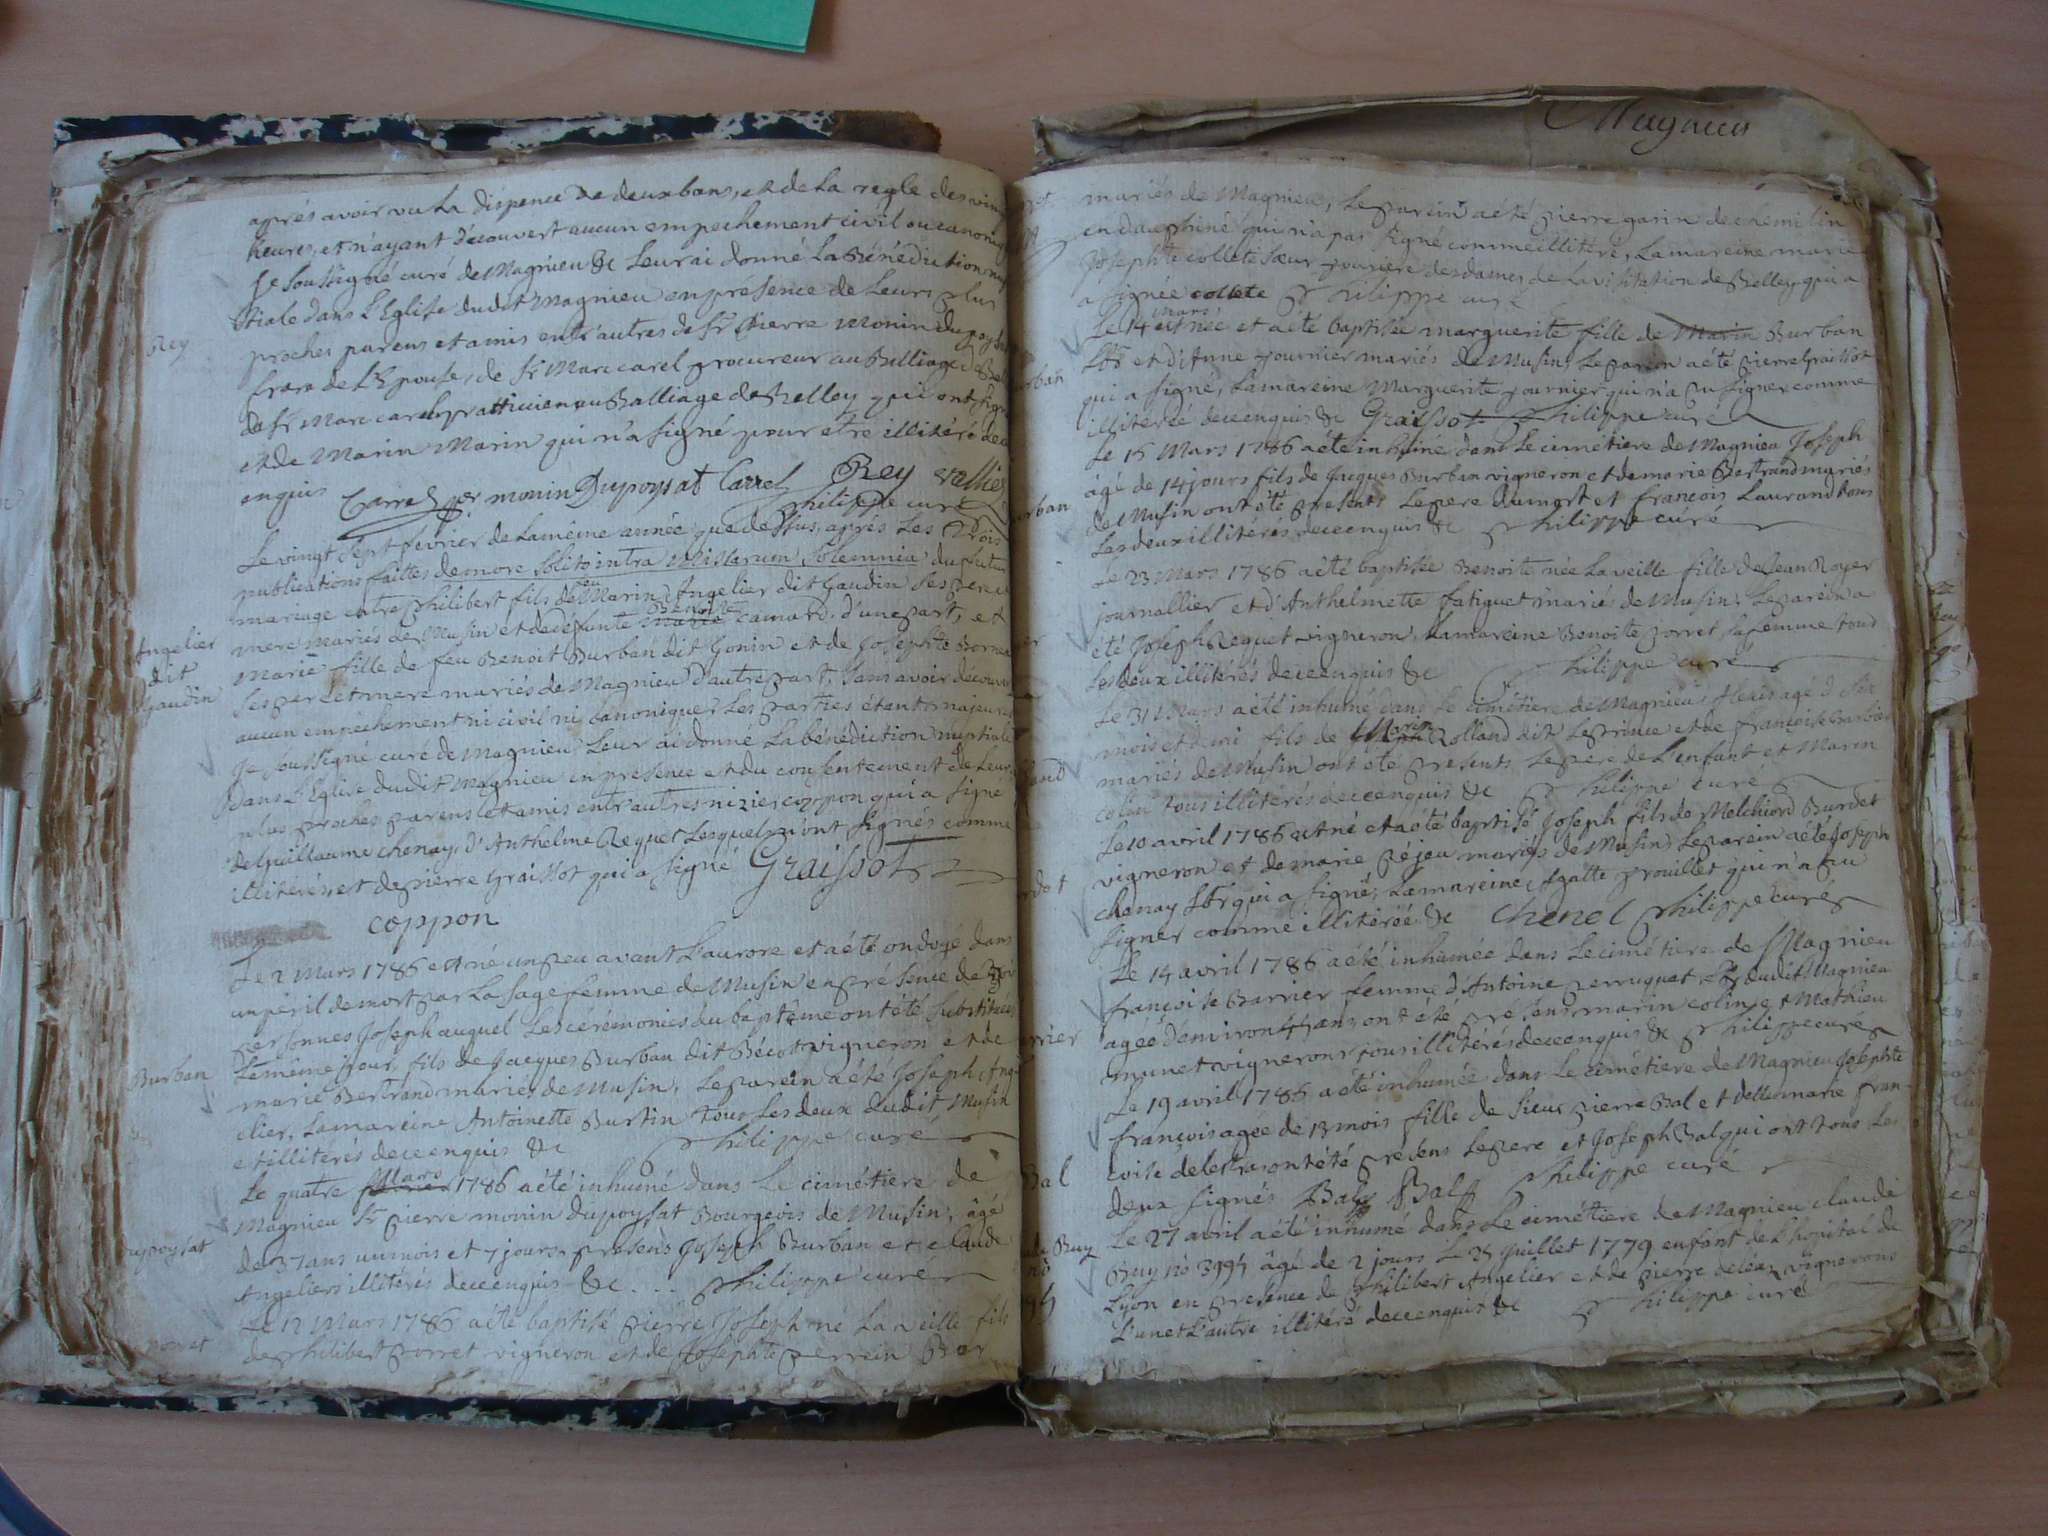 après avoir vu la dispence de deux bans, et de la regle des vingt
heures, et n'ayant découvert aucun empechement civil ou canonique
je soussigné curé de Magnieu &c leur ai donné la Bénédiction nup
tiale dans l'Eglise dudit Magnieu en présence de leurs plus
Rey
proches parens et amis entr'autres de Sr Pierre Monin dupoysat
frere de l'Epouse, de Sr Marc carel procureur au Balliage de Belley
de Sr Marc carel pratticien au Balliage de Belley qui ont signé
et de Marin Marin qui n'a signé pour etre illitéré de ce
enquis Carrel monin Dupoysat Carrel Rey
Philippe curé
Le vingt sept fevrier de la même année que dessus, apres les Trois
publications faittes de more solito intra missarum solemnia du futur
mariage entre Philibert fils de feu Marin Angelier dit Gaudin ses pere et
Angelier dit Gaudin
mere mariés de Musin et de defunte Benoite camard. d'une part, et
Marie fille de feu Benoit Burban dit Gonin et de Josephte
ses pere et mere mariés de Magnieu d'autre part, sans avoir découvert
aucun empechement ni civil ni canonique, les parties étant majeures
je soussigné curé de Magnieu leur ai donné la bénédiction nuptiale
dans l'Eglise dudit Magnieu en présence et du consentement de leurs
plus proches parens et amis entr'autres nizier coppon qui a signé
de Guillaume chenay, d'Anthelme Requet lesquels n'ont signés comme
illitérés, et de pierre Graissot qui a signé Graissot
coppon
Le 2 Mars 1786 est né un peu avant l'aurore et a été ondoyé dans
un péril de mort par la sage femme de Musin en présence de
personnes Joseph auquel les cérémonies du baptême ont été substituées
Burban
le même jour, fils de Jacques Burban dit Bécot vigneron et de
marie Bertrand mariés de Musin, le parein a été Joseph Ange
elier, la mareine Antoinette Burtin tous les deux dudit Musin
et illitérés de ce enquis &c Philippe curé
Le quatre Mars 1786 a été inhumé dans le cimétiere de
Magnieu Sr pierre monin dupoysat Bourgeois de Musin, âgé
dupoysat
de 37 ans un mois et 7 jours, présens Joseph Burban et claude
Angeliers illitérés de ce enquis &c ... Philippe curé
Le 12 Mars 1786 a été baptisé pierre Joseph né la veille fils
porret
de Philibert porret vigneron et de Josephte perrein
Magnieu
mariés de Magnieu, le parein a été pierre garin de chemilin
en dauphiné qui n'a pas signé comme illitéré, la mareine marie
Josephte collete sœur touriere des dames de la visitation de Belley qui a
signée collete Philippe curé
Le 14 mars est née et a été baptisée marguerite fille de Marin Burban
et d'Anne fournier mariés de Musin, le parein a été pierre Graissot
Burban
qui a signé, la mareine Marguerite fournier qui n'a pu signer comme
illitérée de ce enquis &c Graissot Philippe curé
Le 15 Mars 1786 a été inhumé dans le cimétiere de Magnieu Joseph
âgé de 14 jours fils de Jacques Burban vigneron et de marie Bertrand mariés
Burban
de Musin ont été présents le pere du mort et françois Laurand tous
les deux illitérés de ce enquis &c Philippe curé
Le 23 Mars 1786 a été baptisée Benoite née la veille fille de Jean Royer
journallier et d'Anthelmette fatiguet mariés de Musin, le parein a
été Joseph Requet vigneron, la mareine Benoite porret sa femme tous
les deux illitérés de ce enquis &c Philippe curé
Le 31 Mars a été inhumé dans le cimétiere de Magnieu Alexis agé de six
mois et demi fils de Marin Rolland dit le prince et de françoise Barbier
mariés de Musin ont été présents le pere de l'enfant et Marin
colin tous illitérés de ce enquis &c Philippe curé
Le 10 avril 1786 est né et a été baptisé Joseph fils de Melchiord Burdet
vigneron et de marie péjeu mariés de Musin le parein a été Joseph
Burdet
chenay qui a signé, la mareine Agatte prouillet qui n'a pu
signer comme illitérée &c Chenel Philippe curé
Le 14 avril 1786 a été inhumée dans le cimétiere de Magnieu
françoise Barrier femme d'Antoine perruquet dudit Magnieu
Barrier
agée d'environ 44 ans, ont été présens marin colin et Mathieu
munet vignerons tous illitérés de ce enquis &c Philippe curé
Le 19 avril 1786 a été inhumée dans le cimétiere de Magnieu Josephte
françoise agée de 13 mois fille de Sieur pierre Bal et de marie fran
Bal
coise delestras ont été présens le pere et Joseph Bal qui ont tous les
deux signés Bal Bal Philippe curé
Le 27 avril a été inhumé dans le cimétiere de Magnieu claude
Buy no 3995 âgé de 2 jours le 25 juillet 1779 enfant de l'hopital de
Lyon en présence de Philibert Angelier et de pierre deléaz vignerons
l'un et l'autre illitéré de ce enquis &c Philippe curé